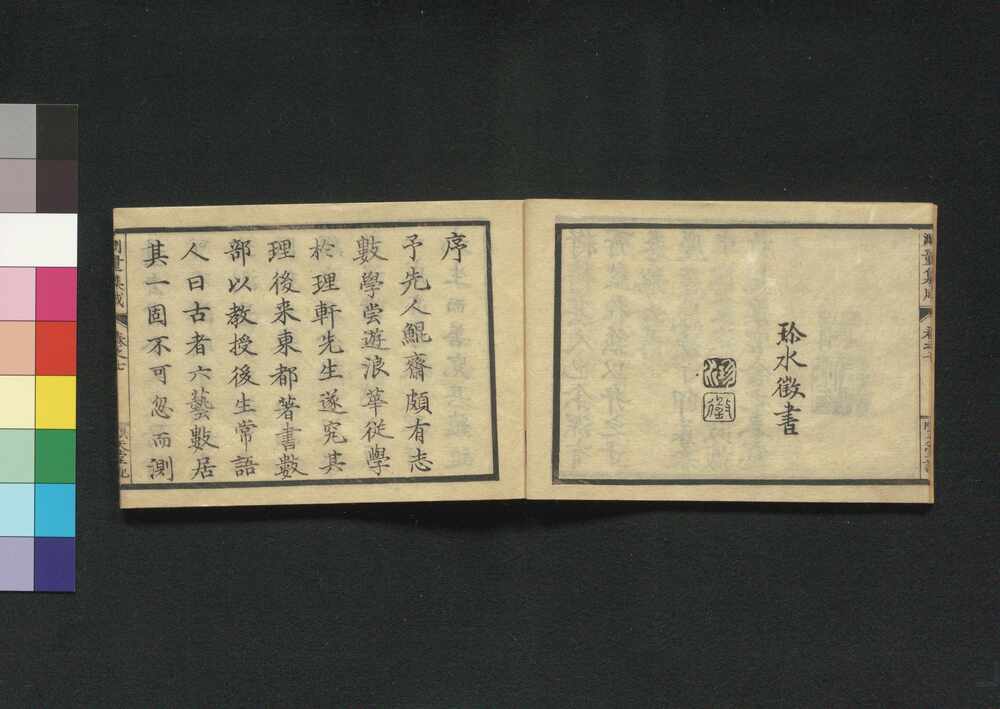 珍水徵書
序
予先人鯤齋頗有志
數學嘗遊浪華從學
於理軒先生遂究其
理後来東都著書數
部以教授後生常語
人曰古者六藝數居
其一固不可忽而測
測量集成
卷之七